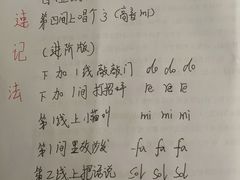 速 第四间上唱个3 (高音mi)
记 (进阶版)
下加1线敲敲门 do do do
法 下加1间打招呼 re re re
第1线上小猫叫 mi mi mi
第1间里发沙发 fa fa fa
第2线上把话说 sol sol sol